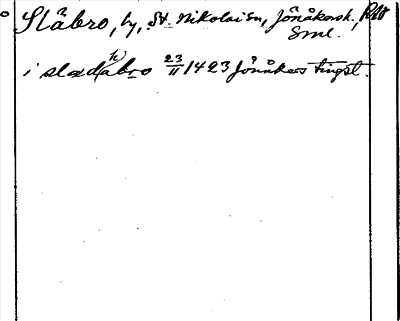 Släbro, by, St. Nikolai sn, Jönåkersh.,
Sml.
i slædabro 23/11 1423 Jönåkers tingst.